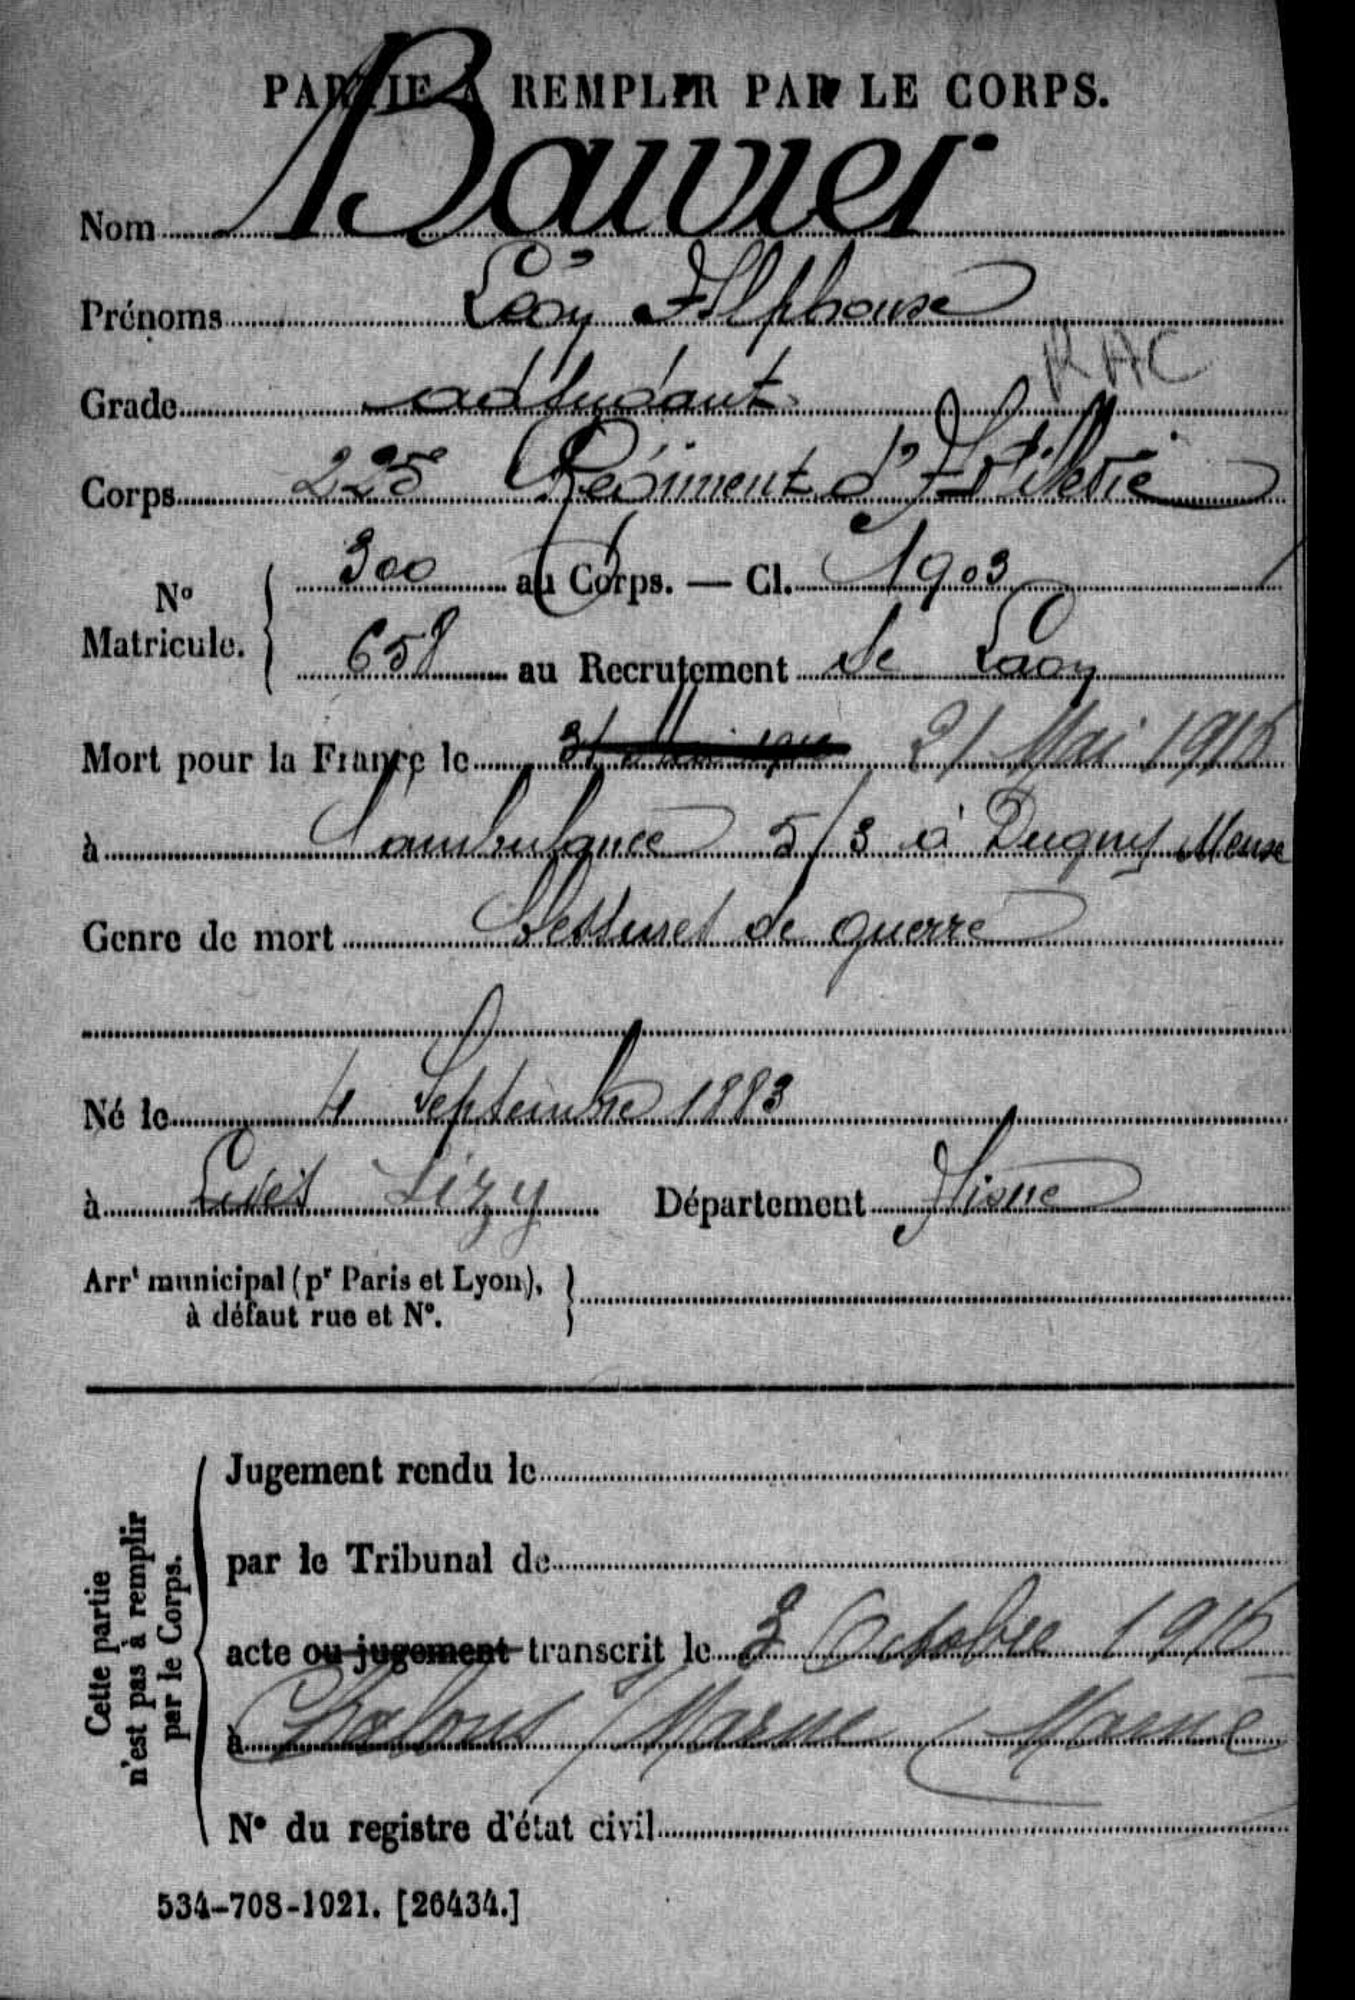 PARTIE À REMPLIR PAR LE CORPS.
Nom Bauvier
Prénoms Léon Alphonse
Grade adjudant RAC
Corps 225e Régiment d'Artillerie
No Matricule. 300 au Corps. — Cl. 1903
658 au Recrutement de Laon
Mort pour la France le 31 Mai 1916 21 Mai 1916
à l'ambulance 5/3 à Dugny Meuse
Genre de mort blessures de guerre
Né le 4 Septembre 1883
à Lizy Département Aisne
Arrt municipal (pr Paris et Lyon),
à défaut rue et No.
Cette partie
n'est pas à remplir
par le Corps.
Jugement rendu le
par le Tribunal de
acte ou jugement transcrit le 3 Octobre 1916
à Chalons s/ Marne Marne
No du registre d'état civil
534-708-1921. [26434.]